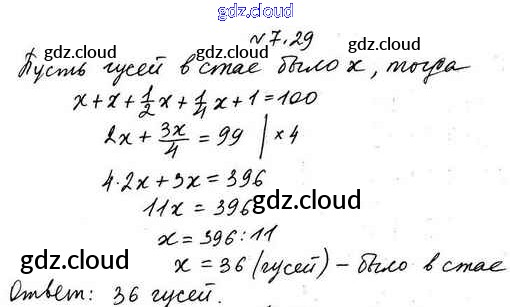 gdz.cloud
№7.29
gdz.cloud gdz.cloud
Пусть гусей в стае было x, тогда
x+x+1/2x+1/4x+1=100
2x+3x/4=99 |×4
gdz.cloud
4·2x+3x=396
11x=396
gdz.cloud
x=396:11
gdz.cloud
x=36 (гусей) – было в стае
gdz.cloud
Ответ: 36 гусей.